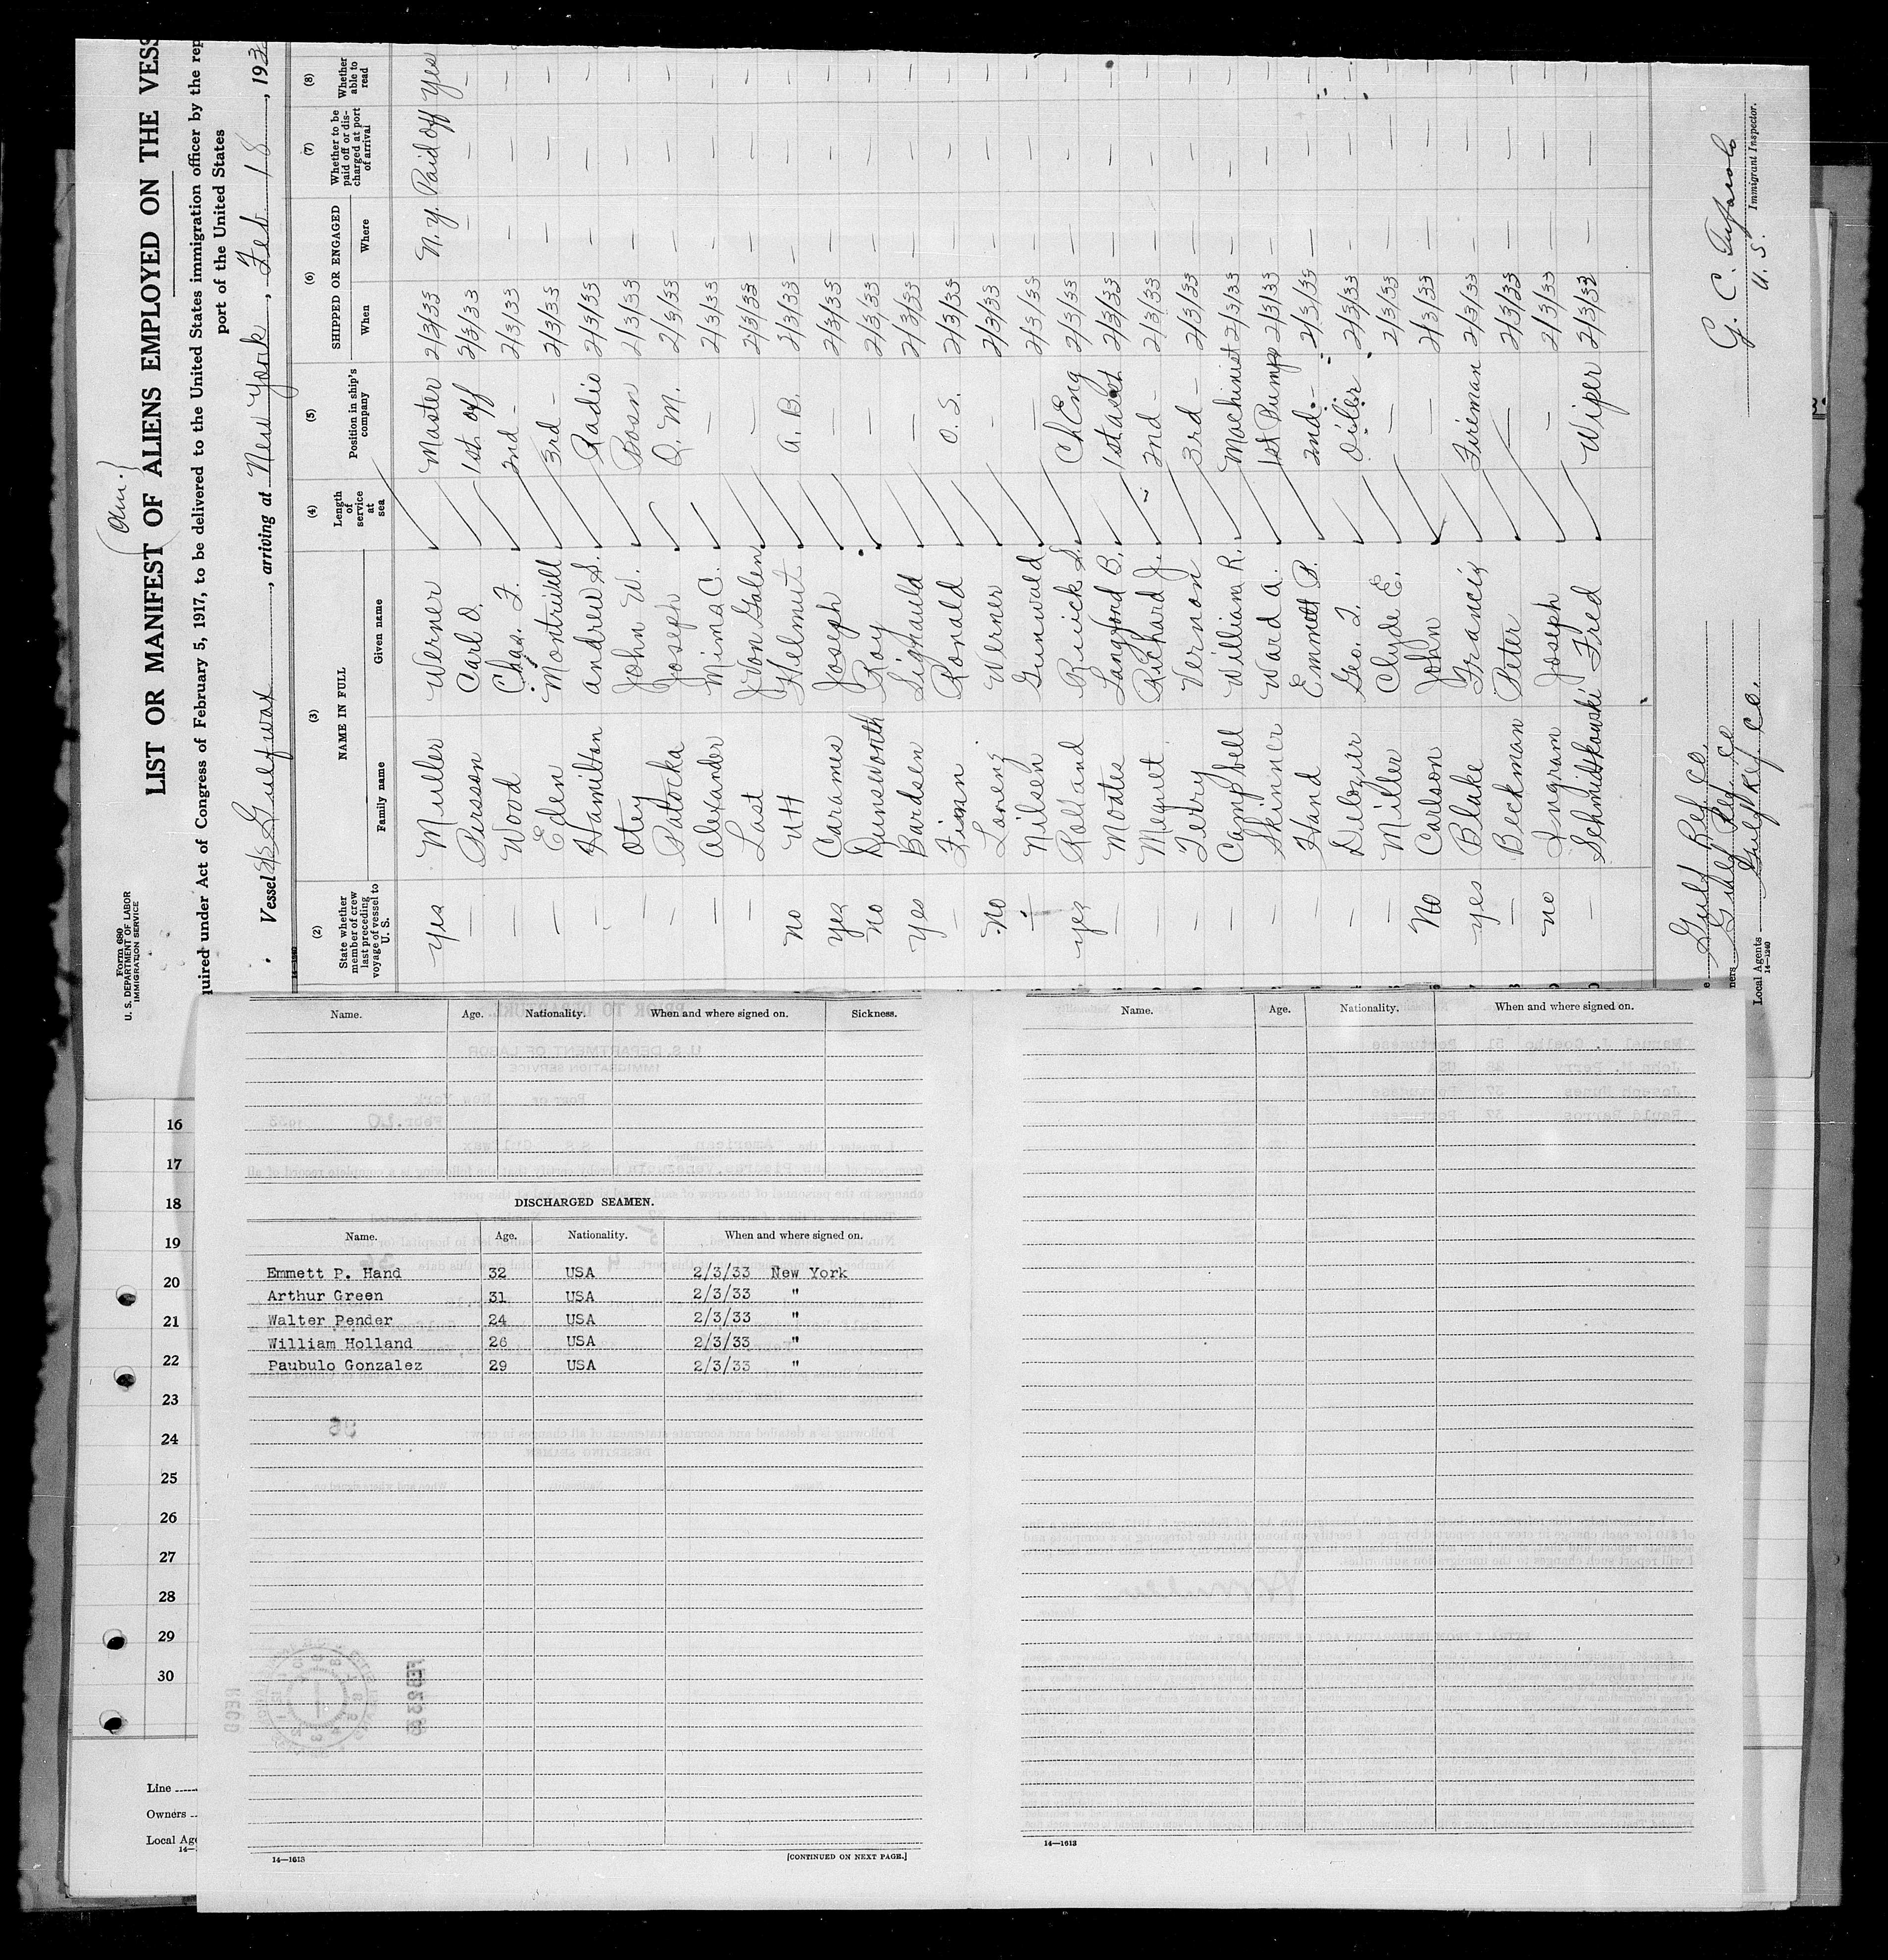 Form 680
U. S. DEPARTMENT OF LABOR
IMMIGRATION SERVICE
(Am.)
LIST OR MANIFEST OF ALIENS EMPLOYED ON THE VESS
quired under Act of Congress of February 5, 1917, to be delivered to the United States immigration officer by the rep
port of the United States
Vessel S/S Gulfwax, arriving at New York, Feb. 18, 193
(2) (3) (4) (5) (6) (7) (8)
State whether member of crew last preceding voyage of vessel to U. S.
NAME IN FULL
Family name Given name
Length of service at sea
Position in ship's company
SHIPPED OR ENGAGED
When Where
Whether to be paid off or discharged at port of arrival
Whether able to read
yes Muller Werner Master 2/3/33 N.Y. Paid off yes
— Persson Carl O. 1st off 2/3/33 — — —
— Wood Chas. F. 2nd — 2/3/33 — — —
— Eden Montruill 3rd — 2/3/33 — — —
— Hamilton Andrew S. Radio 2/3/33 — — —
— Otey John W. Bosn 2/3/33 — — —
— Patocka Joseph Q. M. 2/3/33 — — —
— Alexander Mims C. — 2/3/33 — — —
— Last Von Galen — 2/3/33 — — —
no Uff Helmut A. B. 2/3/33 — — —
yes Carames Joseph — 2/3/33 — — —
no Dunsworth Roy — 2/3/33 — — —
yes Bardsen Signauld — 2/3/33 — — —
— Finn Ronald O. S. 2/3/33 — — —
no Lorenz Werner — 2/3/33 — — —
— Nilsen Gunwald — 2/3/33 — — —
yes Rolland Buick S. Ch Eng 2/3/33 — — —
— Moates Langford B. 1st asst 2/3/33 — — —
— Megret Richard J. 2nd — 2/3/33 — — —
— Terry Vernon 3rd — 2/3/33 — — —
— Campbell William R. Machinist 2/3/33 — — —
— Skinner Ward A. 1st Pump 2/3/33 — — —
— Hand Emmett P. 2nd — 2/3/33 — — —
— Delozier Geo. T. Oiler 2/3/33 — — —
— Miller Clyde E. — 2/3/33 — — —
No Carlson John — 2/3/33 — — —
yes Blake Francis Fireman 2/3/33 — — —
— Beckman Peter — 2/3/33 — — —
no Ingram Joseph — 2/3/33 — — —
— Schmidtkowski Fred Wiper 2/3/33 — — —
Gulf Ref. Co.
Gulf Ref Co
Local Agents Gulf Ref. Co.
14—1240
G. C.
U. S. Immigrant Inspector.
Name. Age. Nationality. When and where signed on. Sickness.
DISCHARGED SEAMEN.
Name. Age. Nationality. When and where signed on.
Emmett P. Hand 32 USA 2/3/33 New York
Arthur Green 31 USA 2/3/33 "
Walter Pender 24 USA 2/3/33 "
William Holland 26 USA 2/3/33 "
Paubulo Gonzalez 29 USA 2/3/33 "
14—1613
[CONTINUED ON NEXT PAGE.]
Name. Age. Nationality. When and where signed on.
14—1613
16
17
18
19
20
21
22
23
24
25
26
27
28
29
30
Line
Owners
Local Age
14—